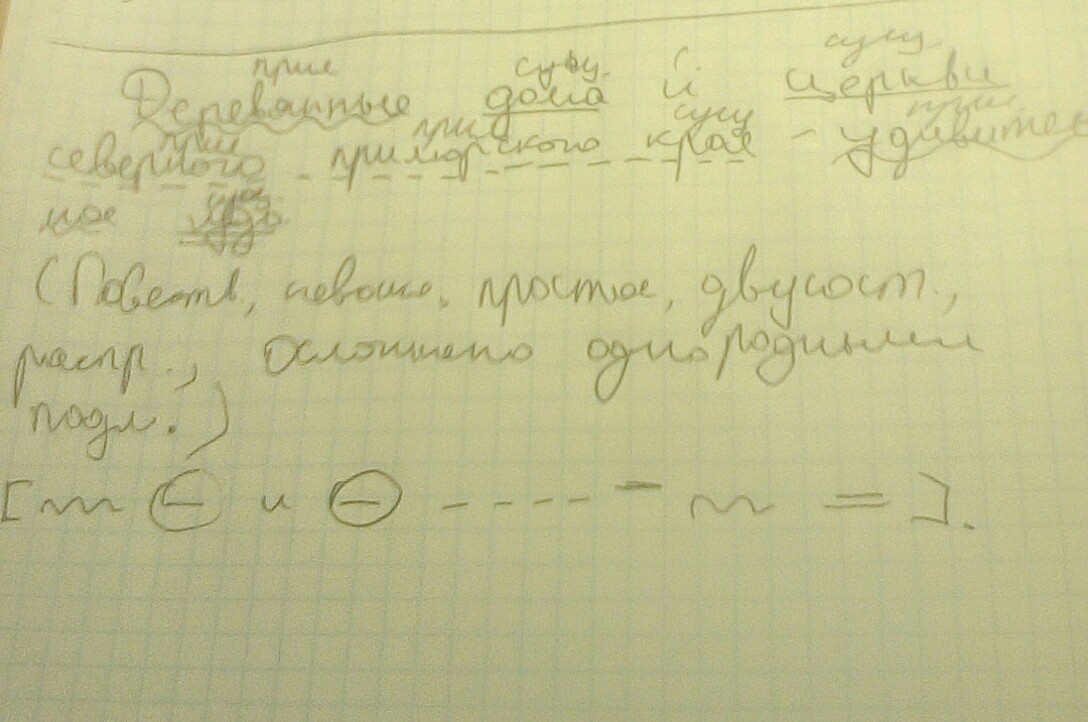 прил сущ. С. сущ.
Деревянные дома и церкви
прил прил сущ прил
северного приморского края – удивитель
ное чудо
(Повеств., невоскл., простое, двусост.,
распр., осложнено однородными
подл.)
[ и – ].